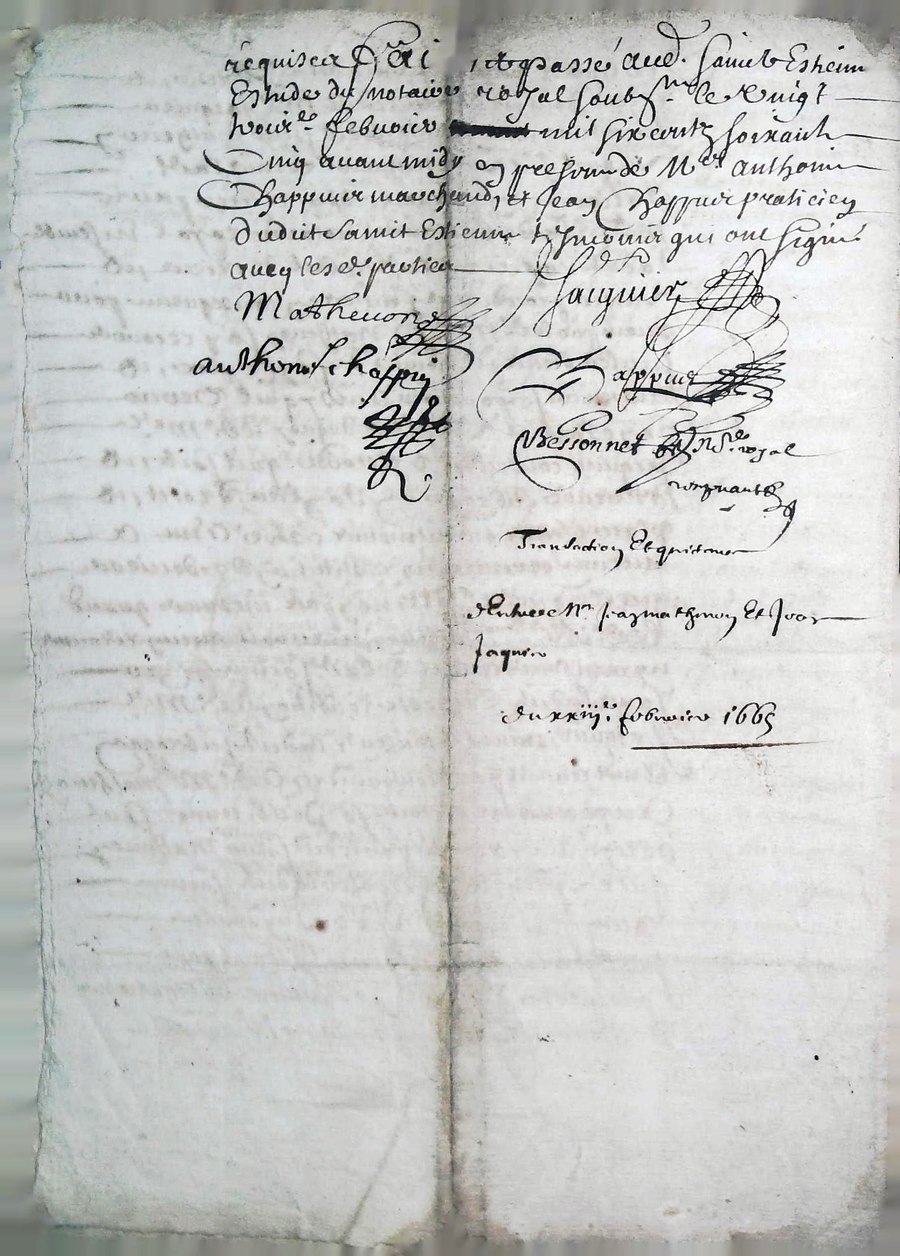 requises Fai ct & passé aud. Saint Estienne
Estude du notaire royal soubsné le vingt
troisie febvrier mil six centz soixante
Cinq avant midy en presence de Me anthoine
Chappuis marchand, et Jean Chappuis praticien
dudit Saint Estienne tesmoins qui ont signé
avecq les d. parties
Matheuon Jacquier
anthone chappuis Chappuis
Bessonnet nre royal
recepvant
Transaction Et quitance
d'Entre Me Jean mathevon Et
Jaquier
du xxiije febvrier 1665